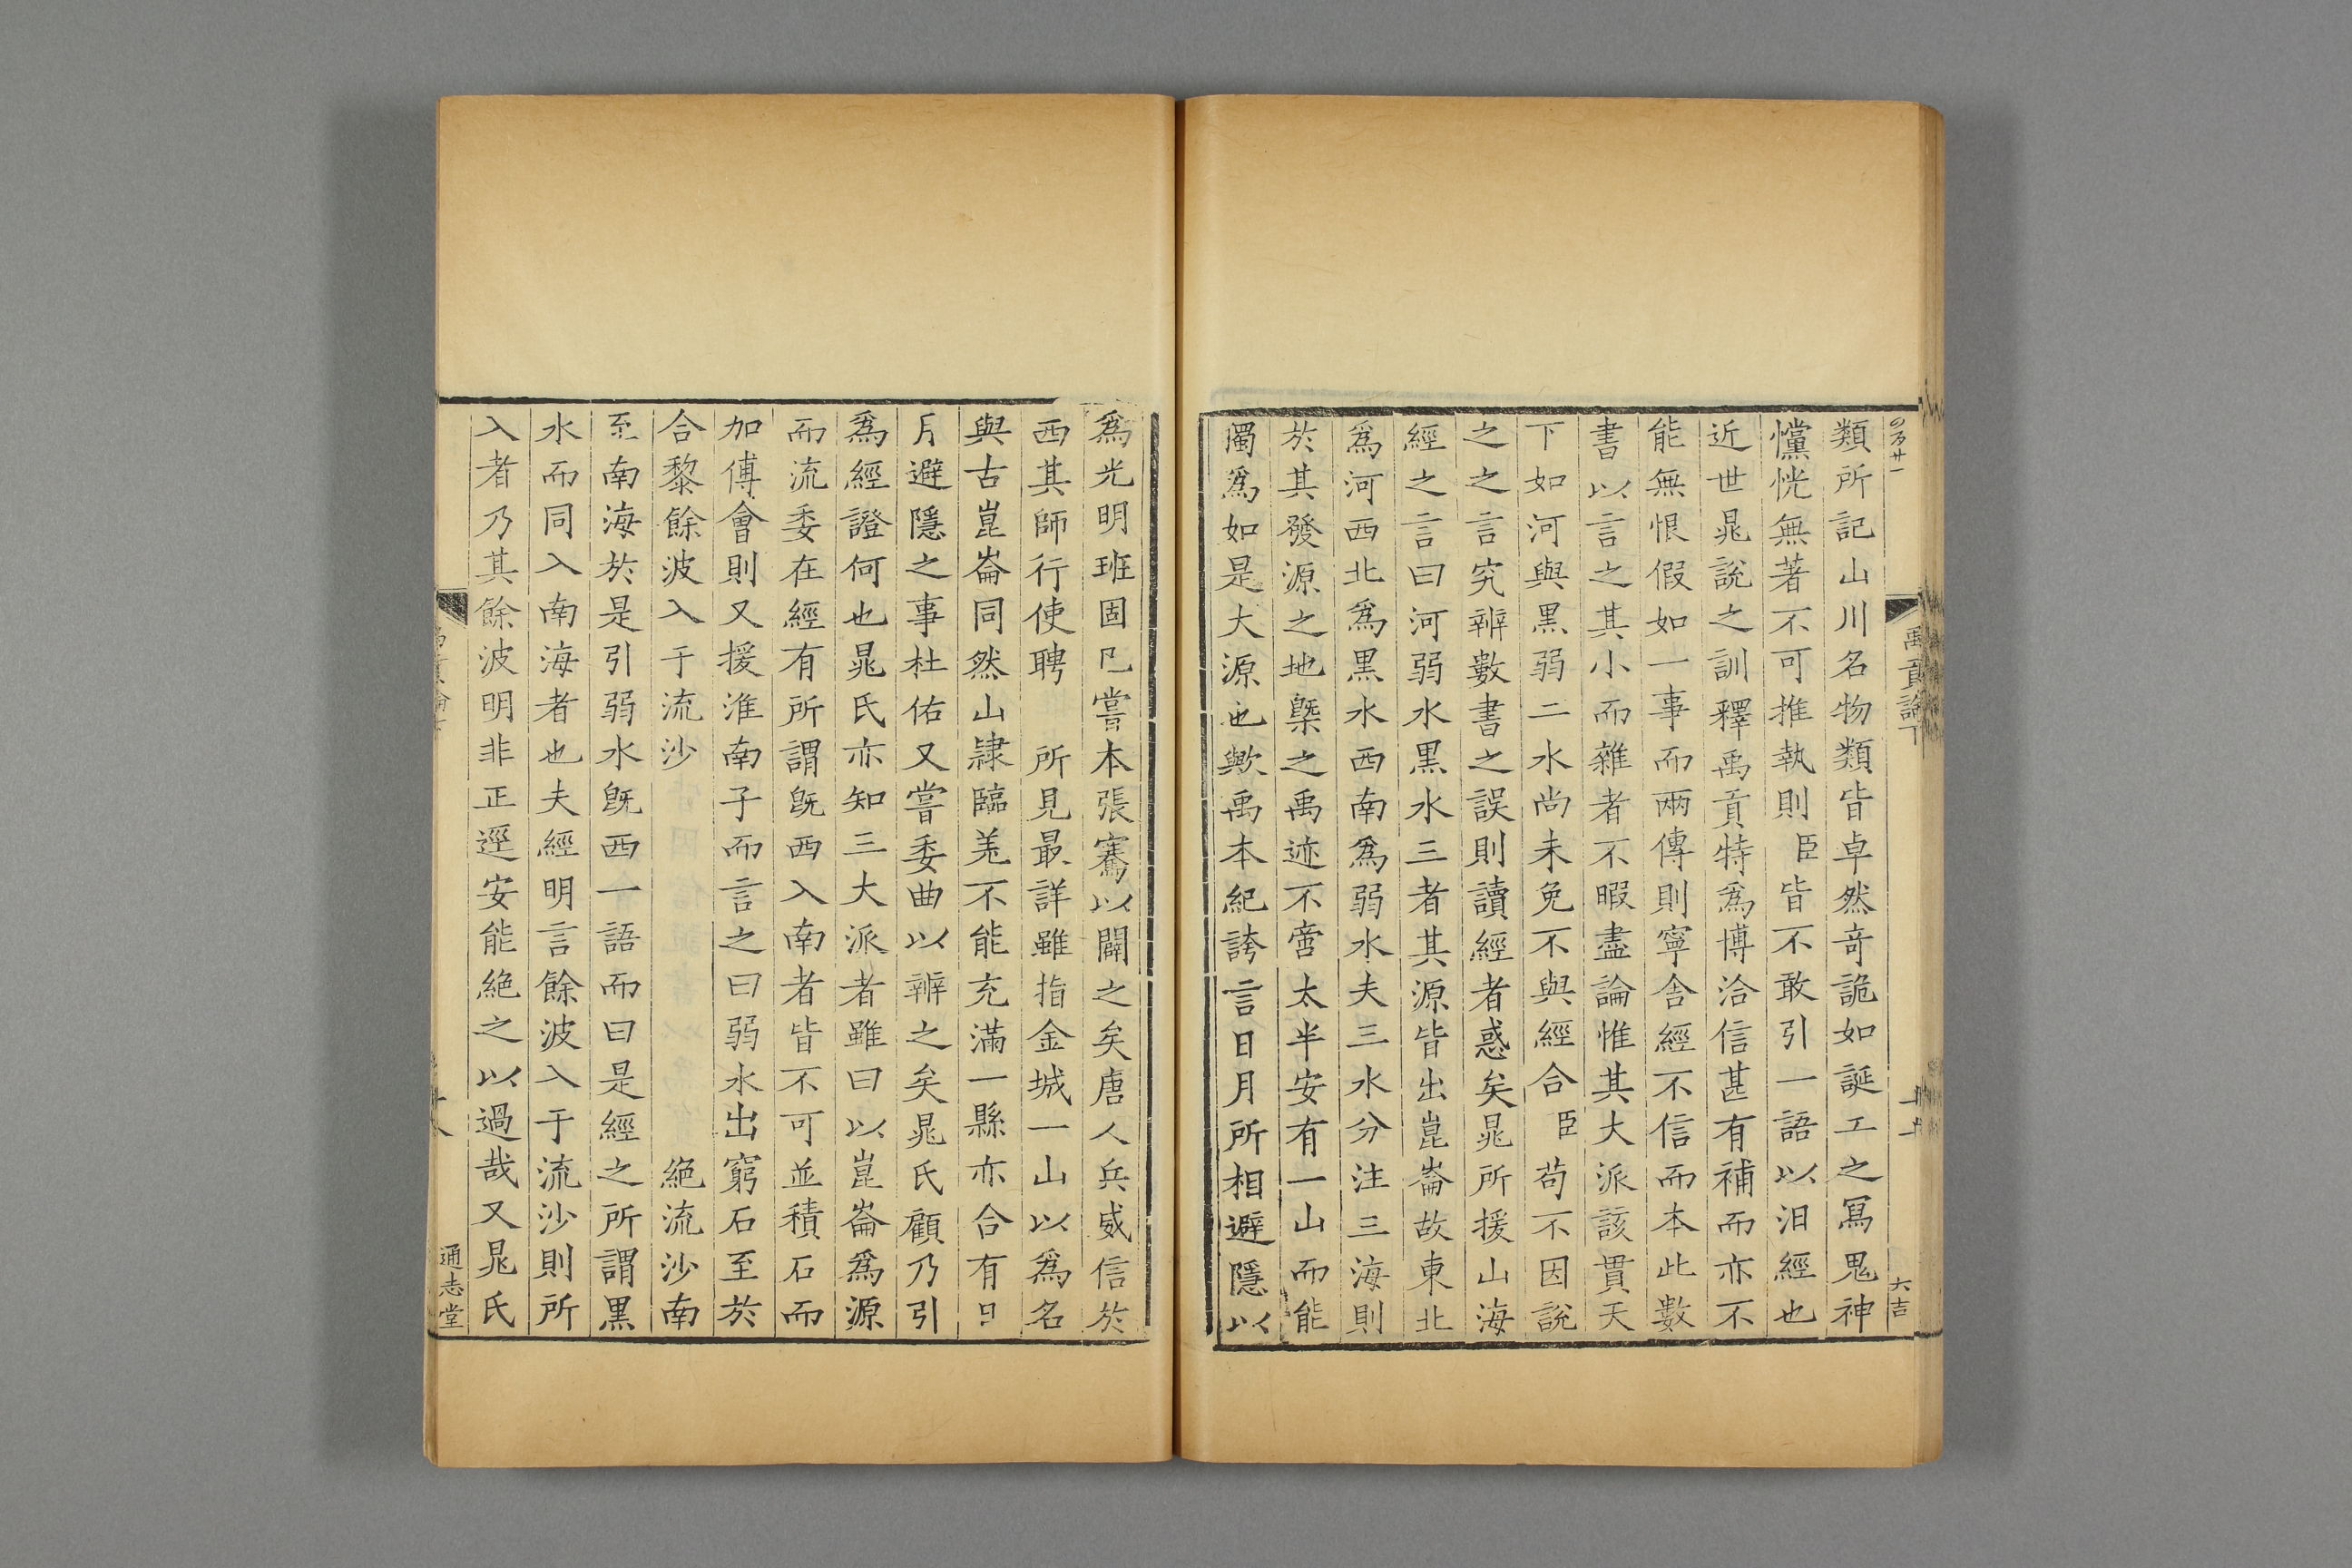 禹貢論下
六吉
類所記山川名物類皆卓然奇詭如誕工之寫鬼神
懭恍無著不可推執則臣皆不敢引一語以汨經也
近世晁說之訓釋禹貢特爲博洽信甚有補而亦不
能無恨假如一事而兩傳則寧舍經不信而本此數
書以言之其小而雜者不暇盡論惟其大派該貫天
下如河與黑弱二水尚未免不與經合臣苟不因說
之之言究辨數書之誤則讀經者惑矣晁所援山海
經之言曰河弱水黑水三者其源皆出崑崙故東北
爲河西北爲黑水西南爲弱水夫三水分注三海則
於其發源之地槩之禹迹不啻太半安有一山而能
獨爲如是大源也歟禹本紀誇言日月所相避隱以
爲光明班固已嘗本張騫以闢之矣唐人兵威信於
西其師行使聘 所見最詳雖指金城一山以爲名
與古崑崙同然山隷臨羌不能充滿一縣亦合有日
月避隱之事杜佑又嘗委曲以辨之矣晁氏顧乃引
爲經證何也晁氏亦知三大派者雖曰以崑崙爲源
而流委在經有所謂旣西入南者皆不可並積石而
加傅會則又援淮南子而言之曰弱水出窮石至於
合黎餘波入于流沙 絕流沙南
至南海於是引弱水旣西一語而曰是經之所謂黑
水而同入南海者也夫經明言餘波入于流沙則所
入者乃其餘波明非正逕安能絕之以過哉又晁氏
通志堂